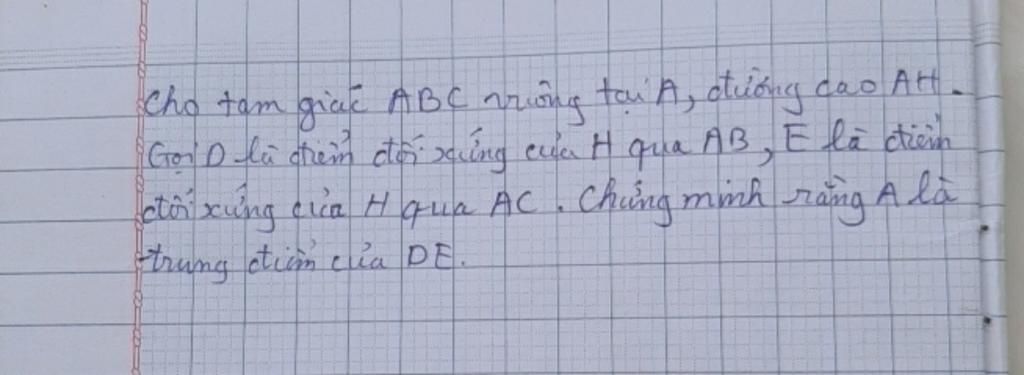 Cho tam giác ABC vuông tại A, đường cao AH.
Gọi D là điểm đối xứng của H qua AB, E là điểm
đối xứng của H qua AC. Chứng minh rằng A là
trung điểm của DE.